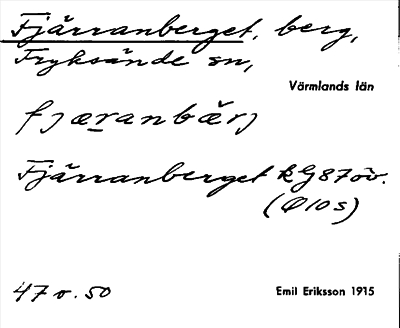 Fjärranberget, berg,
Fryksände sn,
Värmlands län
fjæranbærj
Fjärranberget kG87öv.
(Ø10s)
47 v. 50
Emil Eriksson 1915